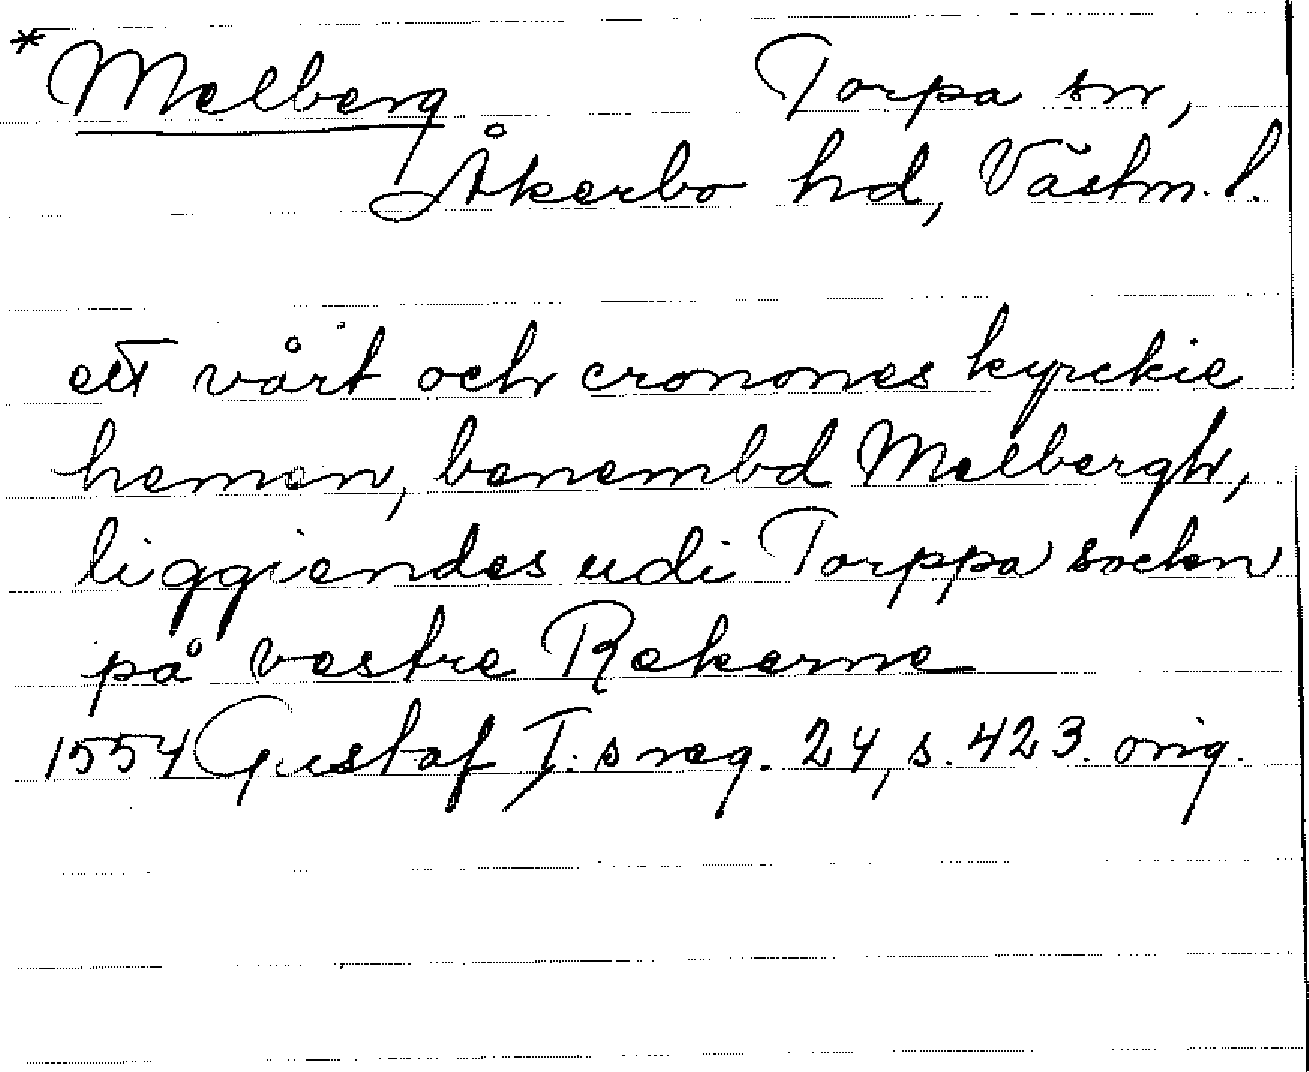 *Melberg Torpa sn,
Åkerbo hd, Västm. l.
ett vårt och cronones kyrckie
hemen, benembd Melbergh,
liggiendes udi Torppa sockn
på vestre Rekerne
1554 Gustaf I:s reg. 24, s. 423. orig.